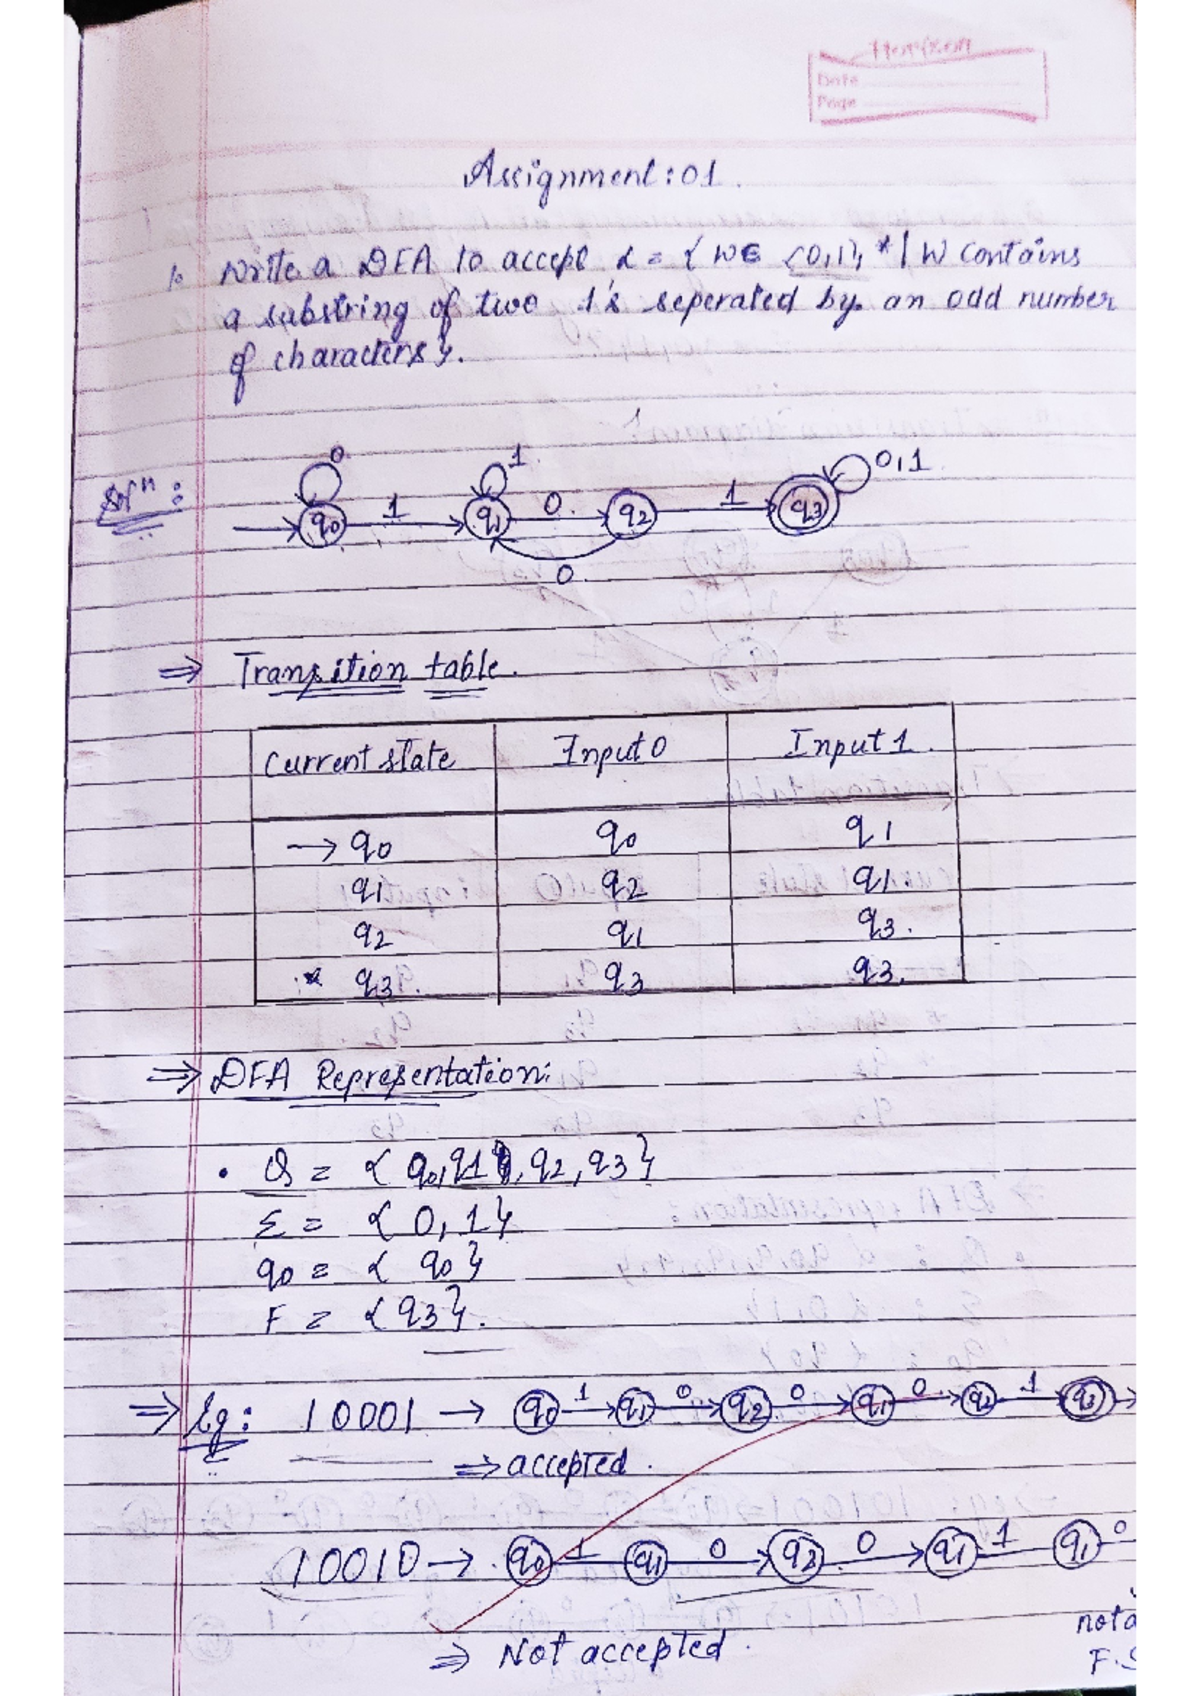 Horizon
Date
Page
Assignment: 01.
1. Write a DFA to accept L = { W ∈ {0,1}* | W contains
a substring of two 1's seperated by an odd number
of characters }.
Solⁿ:
0 1 0, 1
→ q0 1 q1 0. q2 1 q3
0.
⇒ Transition table.
Current state Input 0 Input 1.
→ q0 q0 q1
q1 q2 q1.
q2 q1 q3.
* q3. q3 q3.
⇒ DFA Representation:
• Q = { q0, q1, q2, q3 }
Σ = { 0, 1 }
q0 = { q0 }
F = { q3 }.
⇒ Eg: 10001 → q0 1→ q1 0→ q2 0→ q1 0→ q2 1→ q3 →
⇒ accepted.
10010 → q0 1 q1 0→ q2 0→ q1 1 q1 0
⇒ Not accepted.
F.S